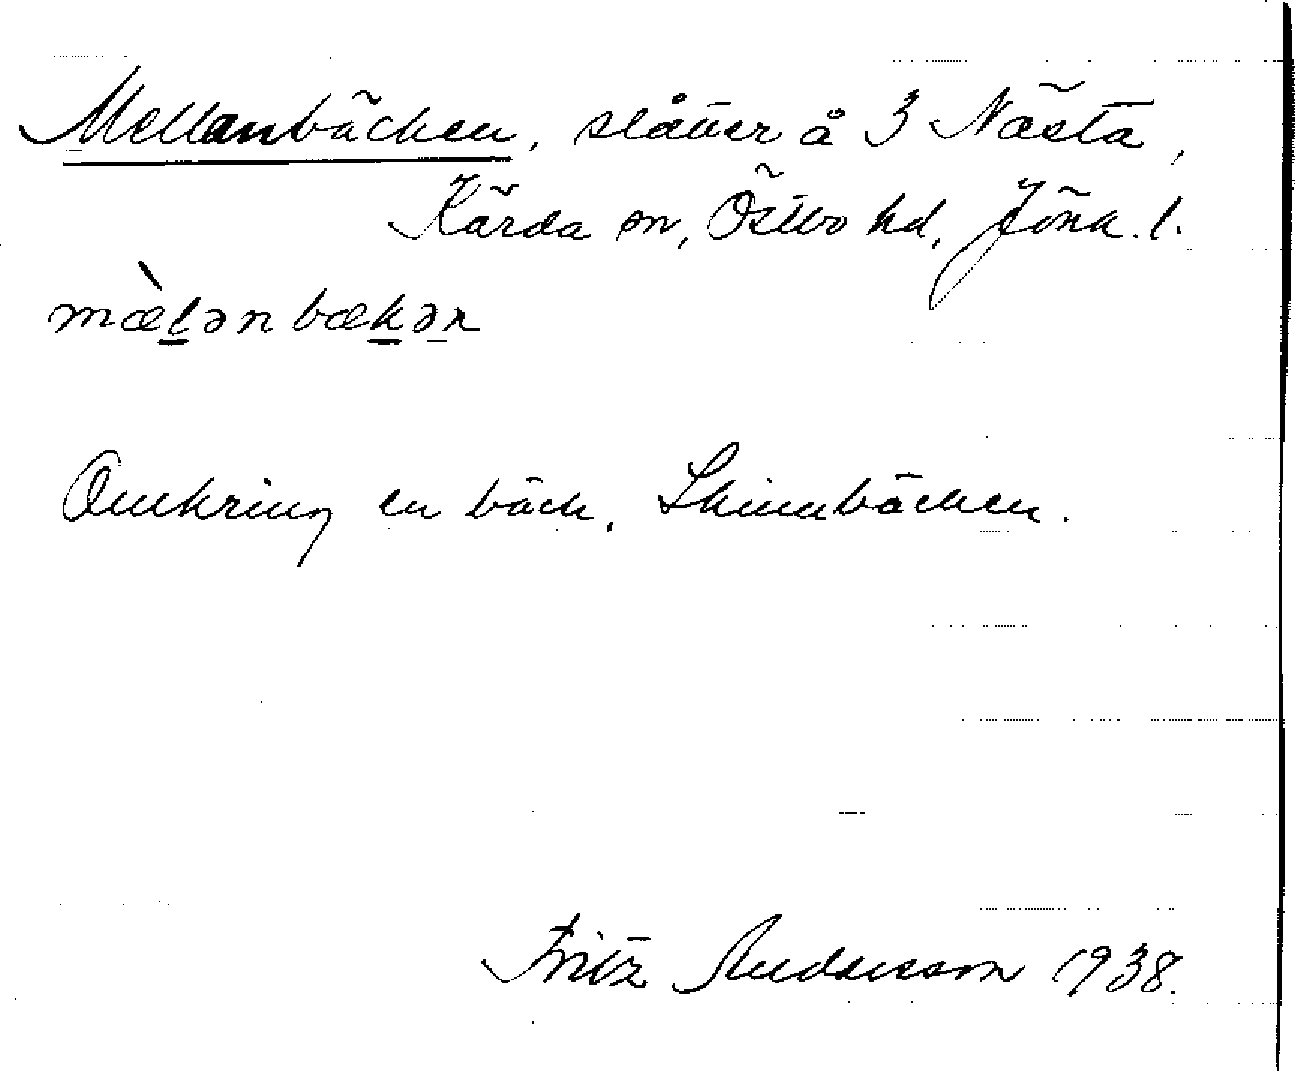 Mellanbäcken, slåtter å 3 Nästa,
Kärda sn, Östbo hd, Jönk. l.
mæ̀lənbækən
Omkring en bäck, Skinnbäcken.
Fritz Andersson 1938.